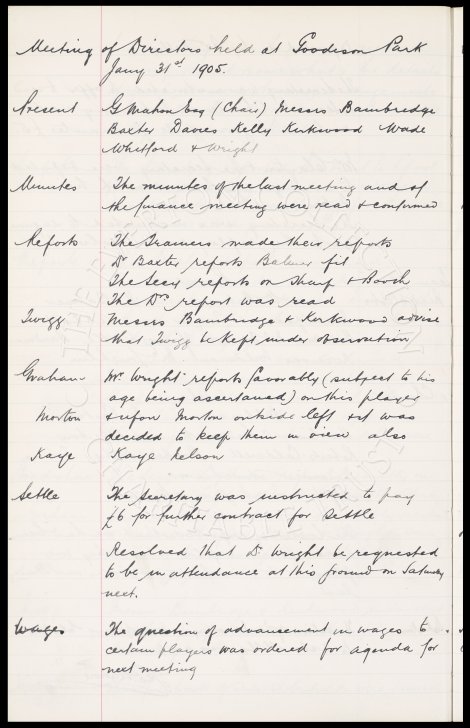 Meeting of Directors held at Goodison Park
Jany 31st 1905.
Present G Mahon Esq (Chair) Messrs Bainbridge
Baxter Davies Kelly Kirkwood Wade
Whitford & Wright
Minutes The minutes of the last meeting and of
the finance meeting were read & confirmed
Reports The Trainers made their reports
Dr Baxter reports Balmer fit
The Secy reports on Sharp & Booth
The Drs report was read
Twigg Messrs Bainbridge & Kirkwood advise
that Twigg be kept under observation
Graham Mr Wright reports favorably (subject to his
age being ascertained) on this player
Morton & upon Morton outside left & it was
decided to keep them in view also
Kaye Kaye Nelson
Settle The Secretary was instructed to pay
£6 for further contract for Settle
Resolved that Dr Wright be requested
to be in attendance at this ground on Saturday
next.
Wages The question of advancement in wages to
certain players was ordered for agenda for
next meeting